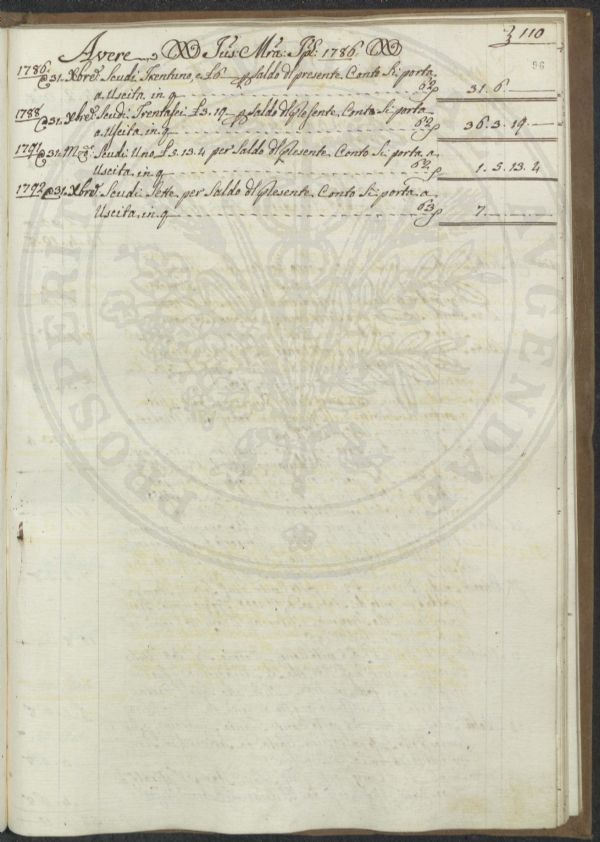 110
96
Avere Jus Mra: Jpl: 1786
1786 @ 31. Xbre. Scudi Trentuno, e £6 saldo d'l presente Conto Si porta
a Uscita in q 62 31. 6.
1788 @ 31. Xbre. Scudi Trentasei £3. 19 Saldo d'l Presente Conto Si porta
a Uscita in q 62 36. 3. 19.
1791 @ 31. Mzo. Scudi Uno £5. 13. 4 per Saldo d'l Presente Conto Si porta a
Uscita in q 62 1. 5. 13. 4
1792 @ 31. Xbre. Scudi Sette per Saldo d'l Presente Conto Si porta a
Uscita in q 63 7.
PROSPERITATI AUGENDAE